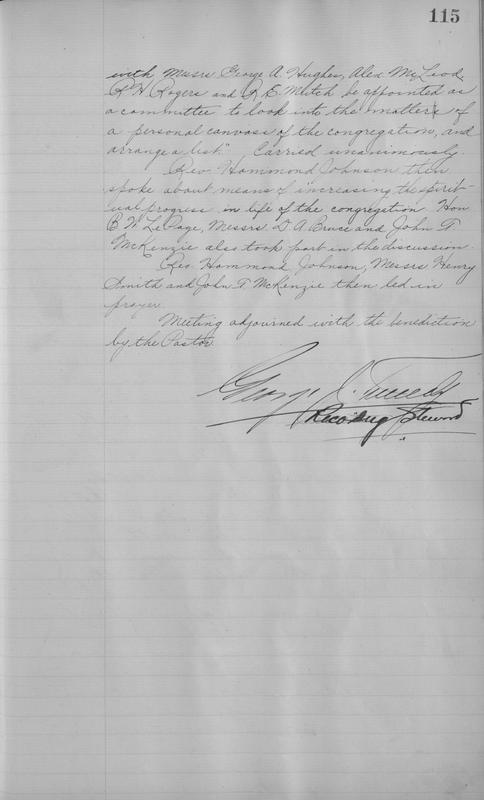 115
with Messrs George A. Hughes, Alex McLeod.
R H Rogers and R. E. Mutch be appointed as
a committee to look into the matter of
a personal canvass of the congregation, and
arrange a list." Carried unanimously.
Rev. Hammond Johnson then
spoke about means of increasing the spirit-
ual progress in life of the congregation Hon
B W LePage, Messrs D A Bruce and John T
McKenzie also took part in the discussion.
Rev. Hammond Johnson, Messrs Henry
Smith and John T McKenzie then led in
prayer.
Meeting adjourned with the benediction
by the Pastor
George J. Tweedy
Recording Steward